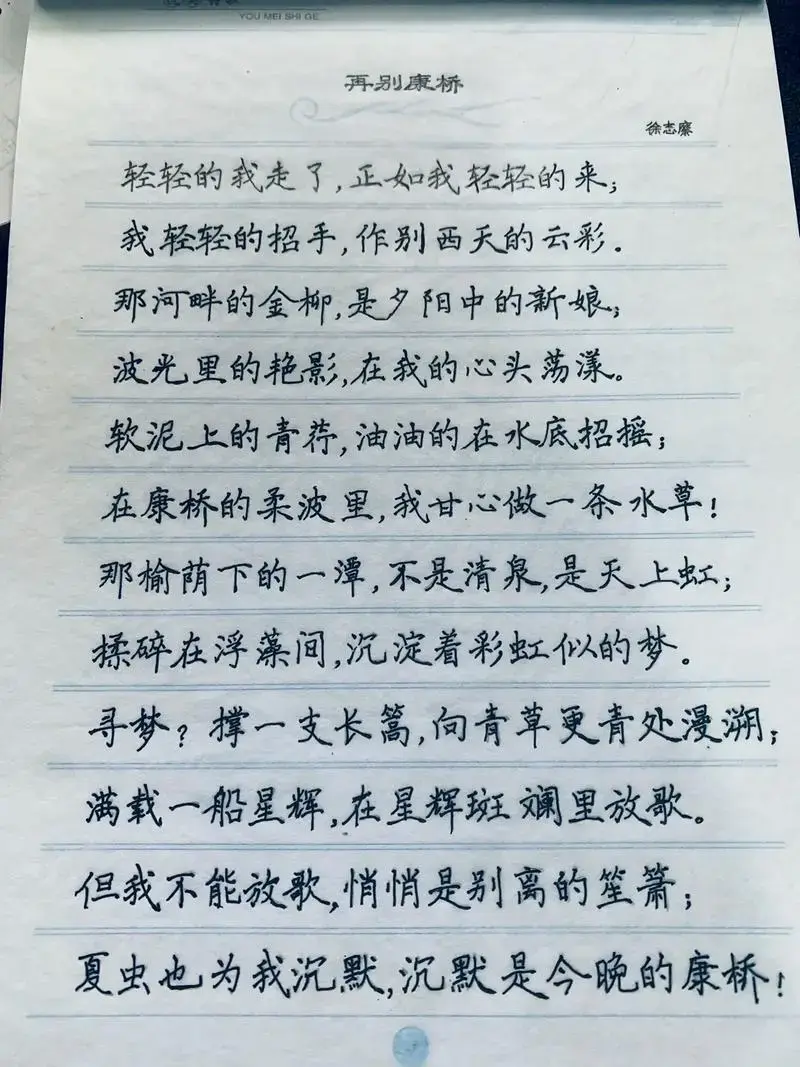 YOU MEI SHI GE
再别康桥
徐志摩
轻轻的我走了,正如我轻轻的来;
我轻轻的招手,作别西天的云彩.
那河畔的金柳,是夕阳中的新娘;
波光里的艳影,在我的心头荡漾。
软泥上的青荇,油油的在水底招摇;
在康桥的柔波里,我甘心做一条水草!
那榆荫下的一潭,不是清泉,是天上虹;
揉碎在浮藻间,沉淀着彩虹似的梦。
寻梦?撑一支长篙,向青草更青处漫溯;
满载一船星辉,在星辉斑斓里放歌。
但我不能放歌,悄悄是别离的笙箫;
夏虫也为我沉默,沉默是今晚的康桥!